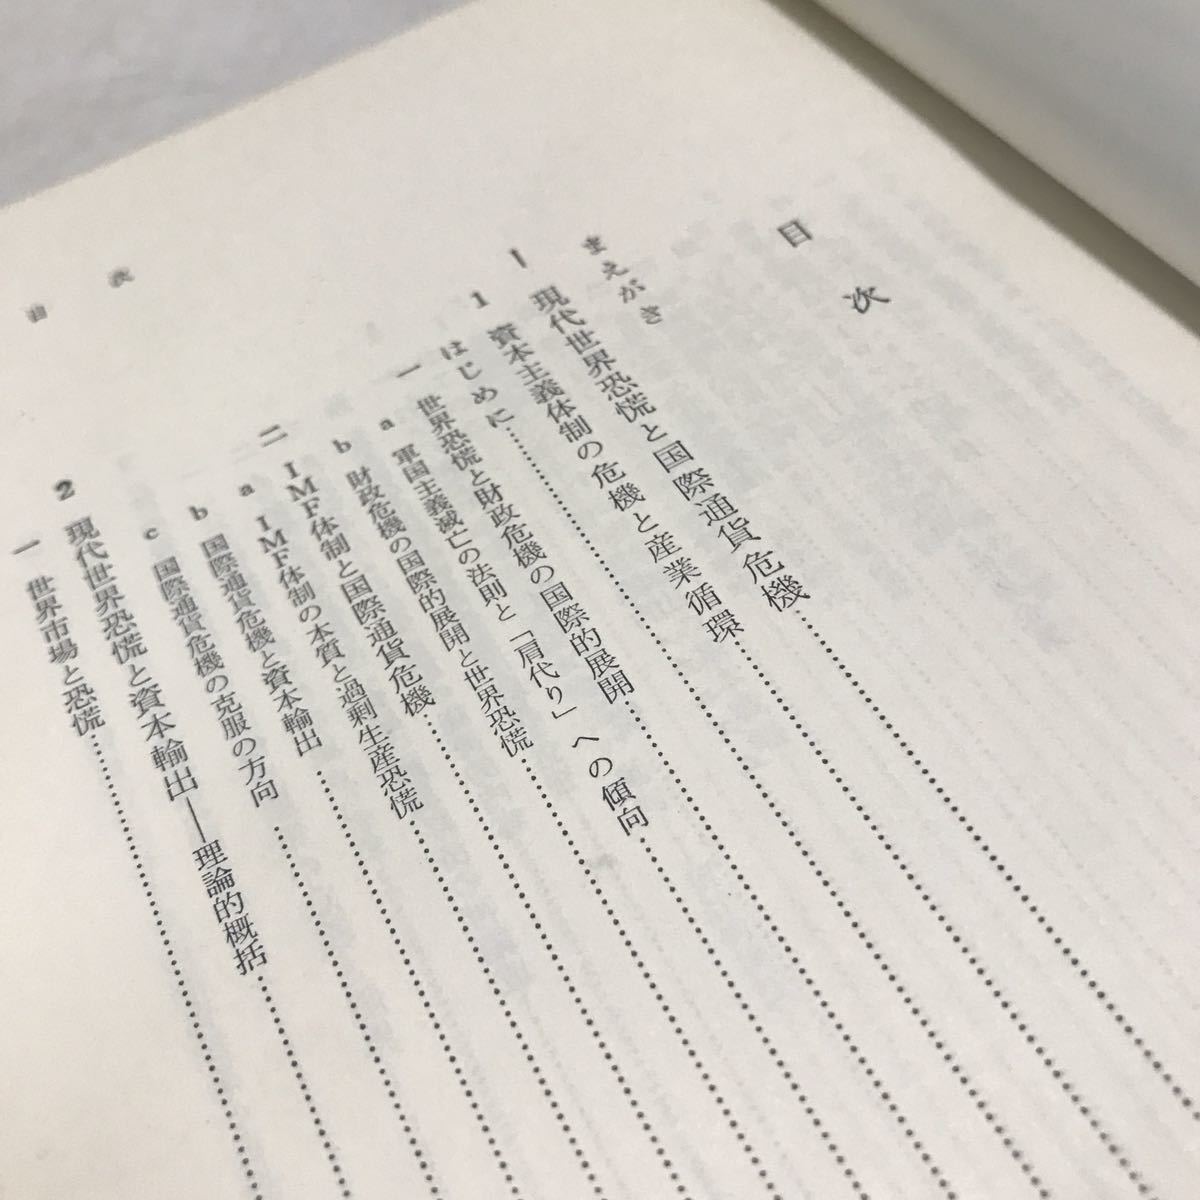 目次
まえがき
I 現代世界恐慌と国際通貨危機……………
1 資本主義体制の危機と産業循環……………
はじめに……………
一 世界恐慌と財政危機の国際的展開……………
a 軍国主義滅亡の法則と「肩代り」への傾向……………
b 財政危機の国際的展開と世界恐慌……………
二 IMF体制と国際通貨危機……………
a IMF体制の本質と過剰生産恐慌……………
b 国際通貨危機と資本輸出……………
c 国際通貨危機の克服の方向……………
2 現代世界恐慌と資本輸出――理論的概括……………
一 世界市場と恐慌……………
目次